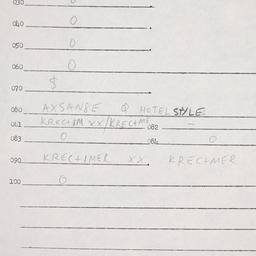 030 0
040 0
050 0
060 0
070 $
080 AXSANBE @ HOTEL STYLE
081 KRECHIM XX/KRECHME 082 —
083 0 084 0
090 KRECHIMER XX. KRECHMER
100 0